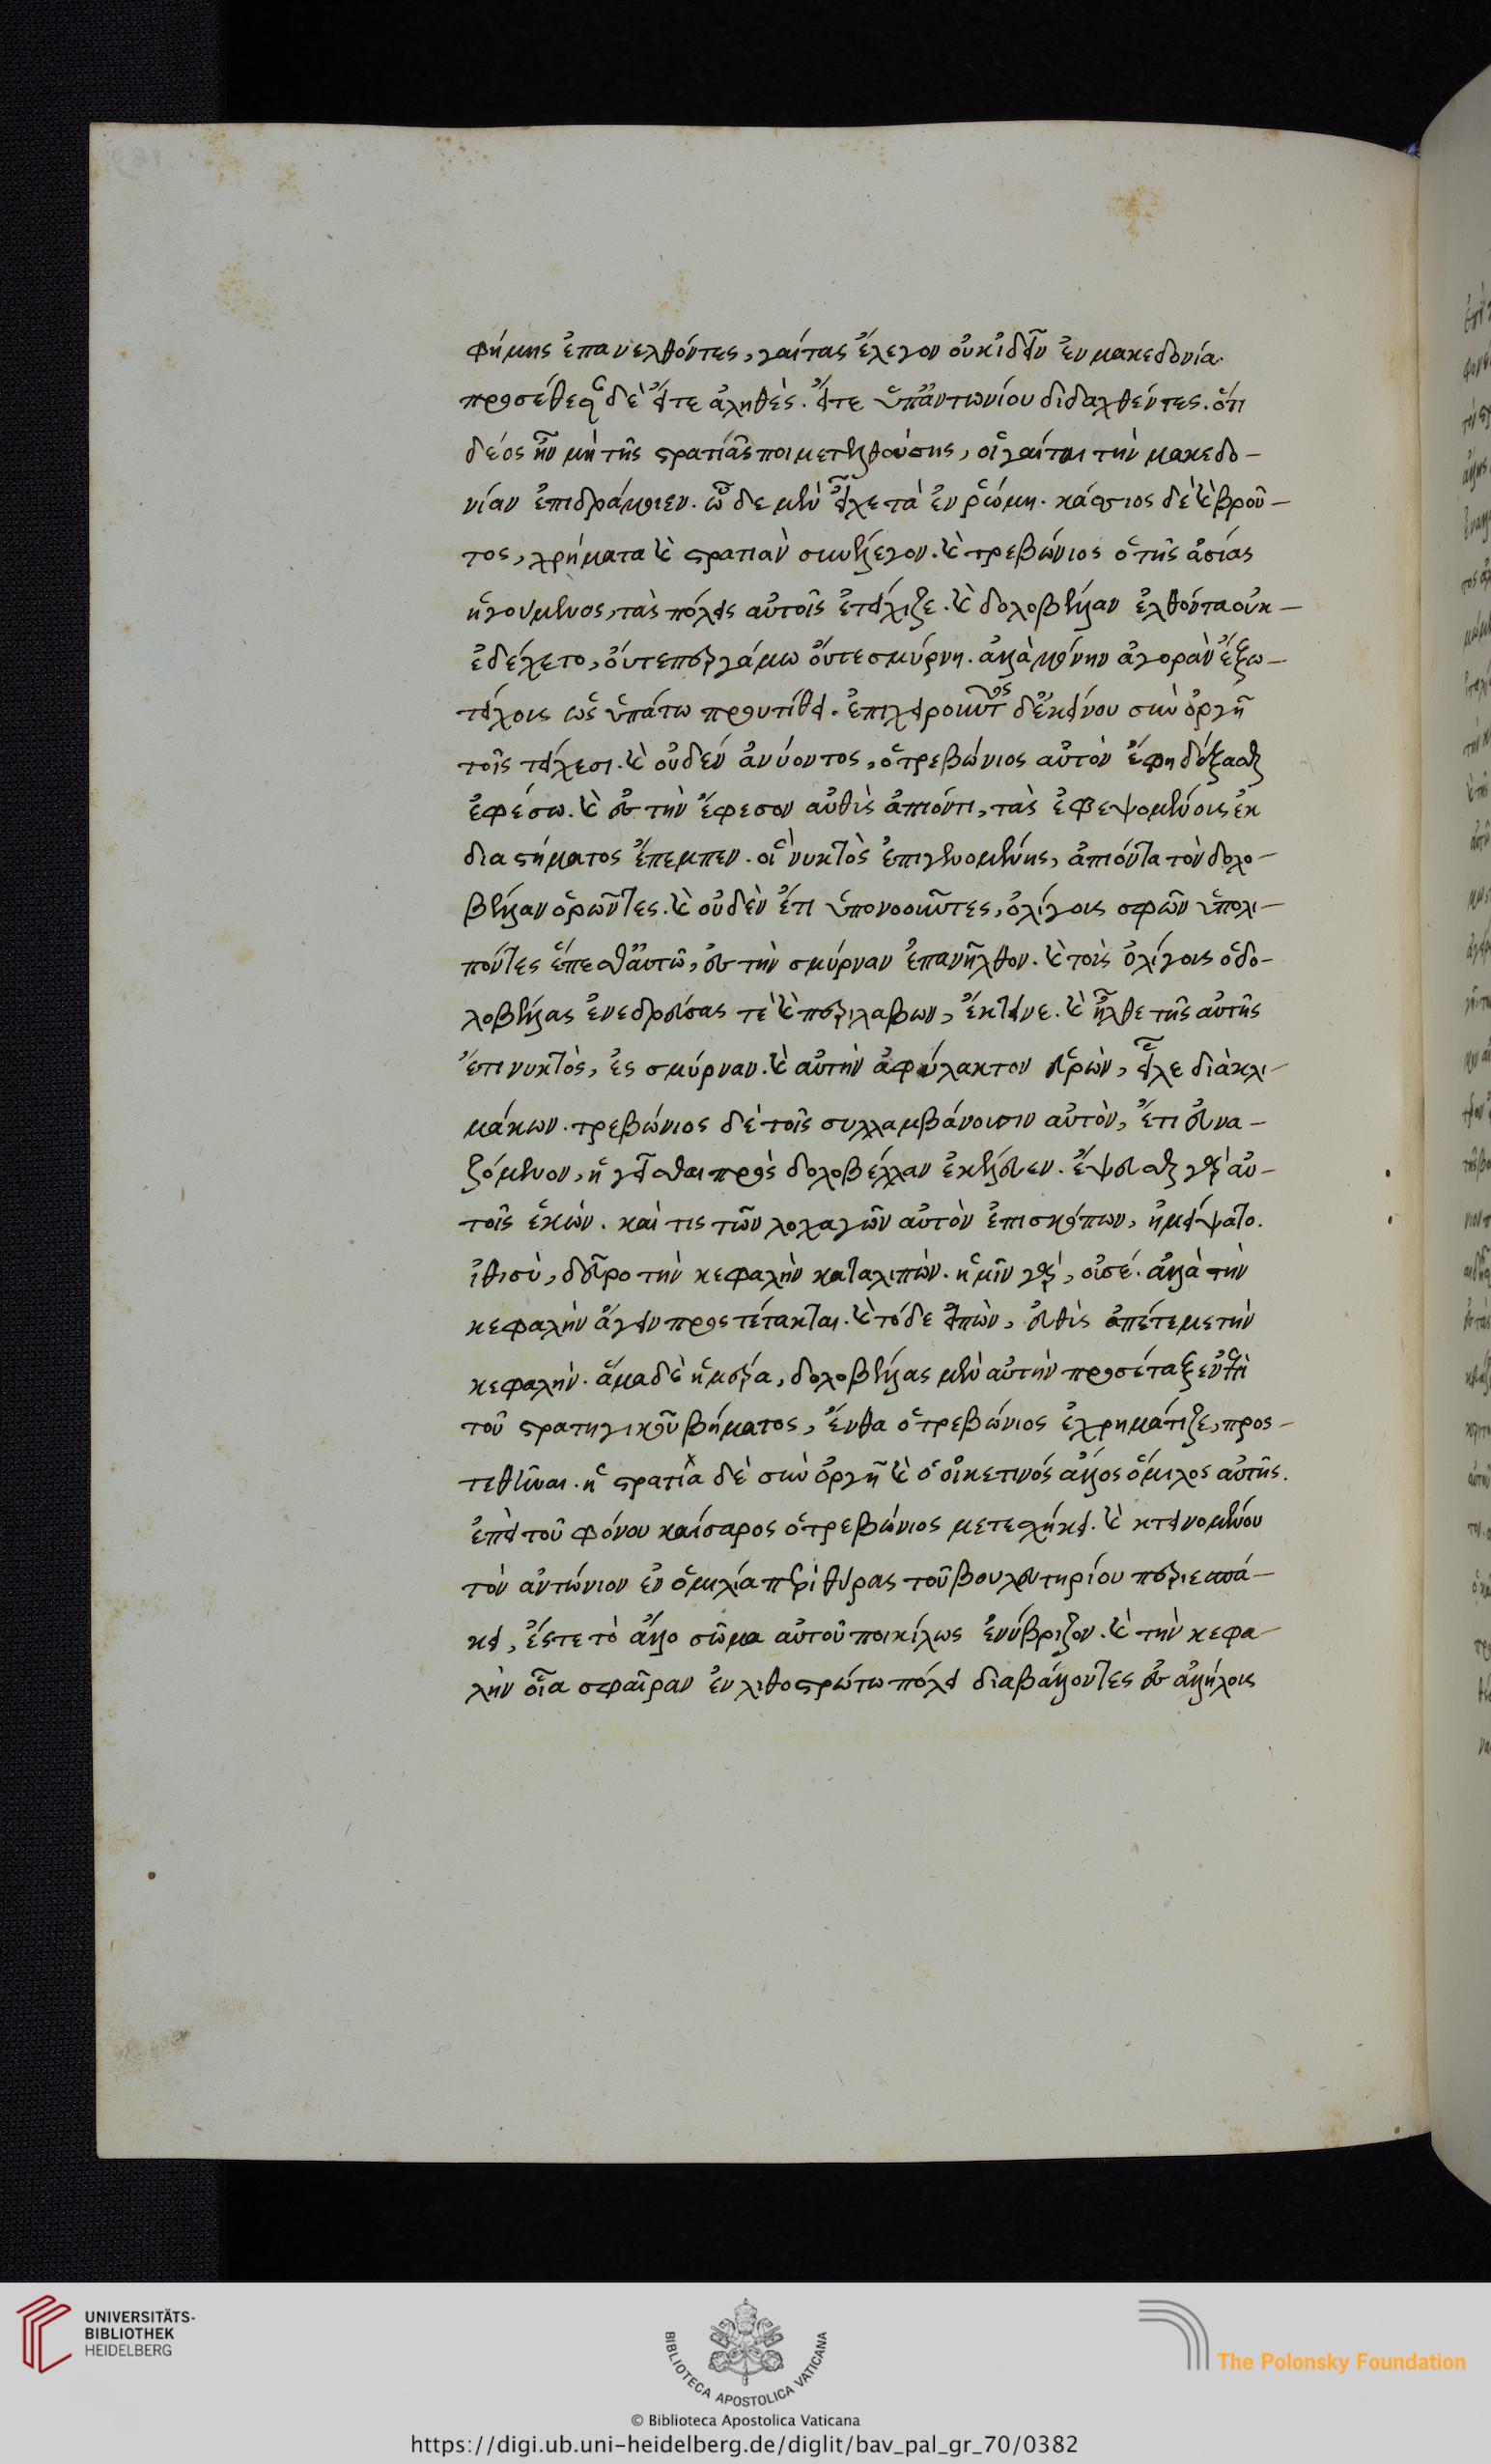 φήμης ἐπανελθόντες, γαίτας ἔλεγον οὐκ ἰδεῖν ἐν μακεδονία.
προσέθεσαν δὲ εἴτε ἀληθὲς. εἴτε ὑπ' ἀντωνίου διδαχθέντες. ὅτι
δέος ἦν μὴ τῆς στρατιᾶς ποι μετελθούσης, οἱ γαίται τὴν μακεδο-
νίαν ἐπιδράμοιεν. ὧδε μὲν εἶχε τὰ ἐν ῥώμη. κάσσιος δὲ καὶ βροῦ-
τος, χρήματα καὶ στρατιὰν συνέλεγον. καὶ τρεβώνιος ὁ τῆς ἀσίας
ἡγούμενος, τὰς πόλεις αὐτοῖς ἐτείχιζε. καὶ δολοβέλλαν ἐλθόντα οὐκ-
ἐδέχετο, οὔτε περγάμω οὔτε σμύρνη. ἀλλὰ μόνην ἀγορὰν ἔξω-
τείχους ὡς ὑπάτω προυτίθει. ἐπιχειροῦντος δ' ἐκείνου σὺν ὀργῆ
τοῖς τείχεσι. καὶ οὐδὲν ἀνύοντος, ὁ τρεβώνιος αὐτὸν ἔφη δέξασθαι
ἐφέσω. καὶ ἐς τὴν ἔφεσον αὐθὶς ἀπιόντι, τὰς ἐφεψομένους ἐκ
διαστήματος ἔπεμπεν. οἳ νυκτὸς ἐπιγενομένης, ἀπιόντα τὸν δολο-
βέλλαν ὁρῶντες. καὶ οὐδὲν ἔτι ὑπονοοῦντες, ὀλίγους σφῶν ὑπολι-
πόντες ἕπεσθ' αὐτῶ, ἐς τὴν σμύρναν ἐπανῆλθον. καὶ τοὺς ὀλίγους ὁ δο-
λοβέλλας ἐνεδρεύσας τὲ καὶ περιλαβων, ἔκτεινε. καὶ ἦλθε τῆς αὐτῆς
ἔτι νυκτὸς, ἐς σμύρναν. καὶ αὐτὴν ἀφύλακτον εὑρὼν, εἷλε διὰ κλι-
μάκων. τρεβώνιος δὲ τοῖς συλλαμβάνουσιν αὐτὸν, ἔτι εὐνα-
ζόμενον, ἡγεῖσθαι πρὸς δολοβέλλαν ἐκέλευεν. ἕψεσθαι γὰρ αὐ-
τοῖς ἑκών. καί τις τῶν λοχαγῶν αὐτὸν ἐπισκώπτων, ἠμείψατο.
ἴθι σὺ, δεῦρο τὴν κεφαλὴν καταλιπών. ἡμῖν γὰρ, οὐ σέ. ἀλλὰ τὴν
κεφαλὴν ἄγειν προστέτακται. καὶ τόδε εἰπὼν, εὐθὺς ἀπέτεμε τὴν
κεφαλήν. ἅμα δὲ ἡμέρα, δολοβέλλας μὲν αὐτὴν προσέταξεν ἐπὶ
τοῦ στρατηγικοῦ βήματος, ἔνθα ὁ τρεβώνιος ἐχρημάτιζε, προς-
τεθῆναι. ἡ στρατιὰ δὲ σὺν ὀργῆ καὶ ὁ οἰκετινός ἄλλος ὅμιλος αὐτῆς.
ἐπεὶ τοῦ φόνου καίσαρος ὁ τρεβώνιος μετεσχήκει. καὶ κτεινομένου
τὸν ἀντώνιον ἐν ὁμιλία περὶ θύρας τοῦ βουλευτηρίου περιεσπά-
κει, ἔς τε τὸ ἄλλο σῶμα αὐτοῦ ποικίλως ἐνύβριζον. καὶ τὴν κεφα-
λὴν οἷα σφαῖραν ἐν λιθοστρώτω πόλει διαβάλλοντες ἐς ἀλλήλους
UNIVERSITÄTS-
BIBLIOTHEK
HEIDELBERG
BIBLIOTECA APOSTOLICA VATICANA
The Polonsky Foundation
© Biblioteca Apostolica Vaticana
https://digi.ub.uni-heidelberg.de/diglit/bav_pal_gr_70/0382